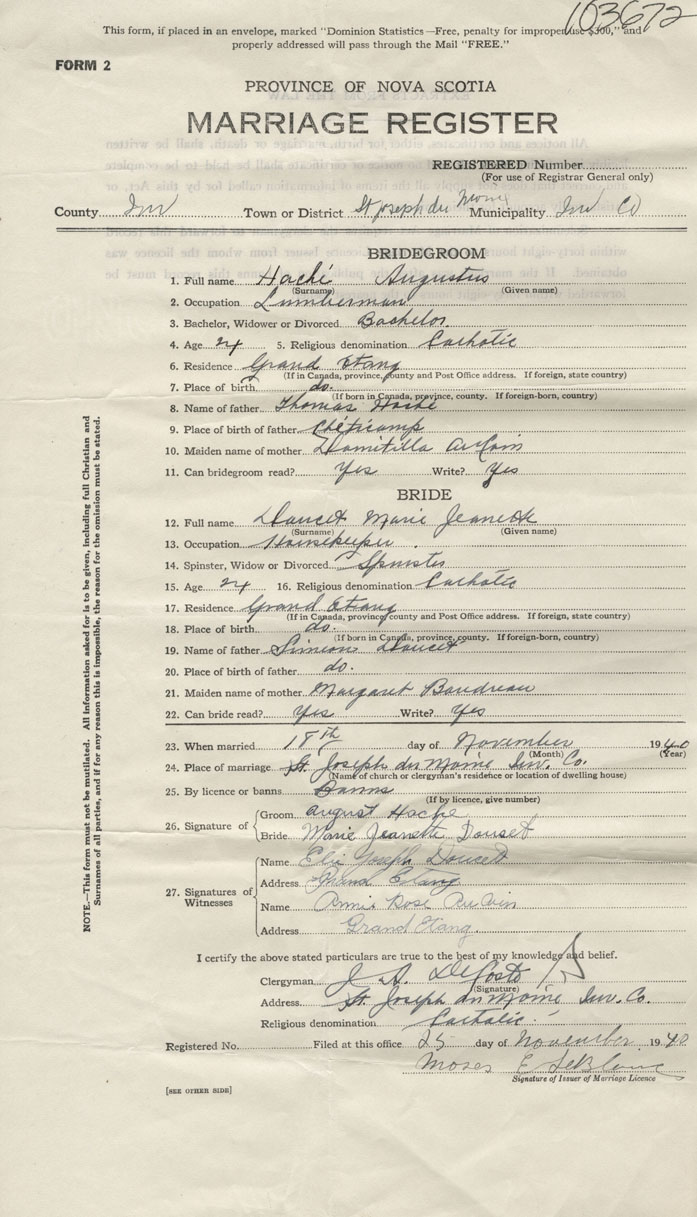 103672
This form, if placed in an envelope, marked "Dominion Statistics—Free, penalty for improper use $300," and
properly addressed will pass through the Mail "FREE."
FORM 2
PROVINCE OF NOVA SCOTIA
MARRIAGE REGISTER
REGISTERED Number
(For use of Registrar General only)
County Inv Town or District St Joseph du Moine Municipality Inv Co
BRIDEGROOM
1. Full name Haché Augustus
(Surname) (Given name)
2. Occupation Lumberman
3. Bachelor, Widower or Divorced Bachelor
4. Age 24 5. Religious denomination Catholic
6. Residence Grand Etang
(If in Canada, province, county and Post Office address. If foreign, state country)
7. Place of birth do.
(If born in Canada, province, county. If foreign-born, country)
8. Name of father Thomas Haché
9. Place of birth of father Chéticamp
10. Maiden name of mother Domitilla AuCoin
11. Can bridegroom read? Yes Write? Yes
BRIDE
12. Full name Doucet Marie Jeanette
(Surname) (Given name)
13. Occupation Housekeeper
14. Spinster, Widow or Divorced Spinster
15. Age 24 16. Religious denomination Catholic
17. Residence Grand Etang
(If in Canada, province, county and Post Office address. If foreign, state country)
18. Place of birth do.
(If born in Canada, province, county. If foreign-born, country)
19. Name of father Simeon Doucet
20. Place of birth of father do.
21. Maiden name of mother Margaret Boudreau
22. Can bride read? Yes Write? Yes
23. When married 18th day of November 1940
(Month) (Year)
24. Place of marriage St. Joseph du Moine Inv. Co.
(Name of church or clergyman's residence or location of dwelling house)
25. By licence or banns Banns
(If by licence, give number)
26. Signature of
Groom August Hache
Bride Marie Jeanette Douset
27. Signatures of Witnesses
Name Elie Joseph Doucet
Address Grand Etang
Name Annie Rose AuCoin
Address Grand Etang
I certify the above stated particulars are true to the best of my knowledge and belief.
Clergyman J. A. DeCosto
(Signature)
Address St. Joseph du Moine Inv. Co.
Religious denomination Catholic.
Registered No. Filed at this office 25 day of November 1940
Moses E LeBlanc
Signature of Issuer of Marriage Licence
[SEE OTHER SIDE]
NOTE.—This form must not be mutilated. All information asked for is to be given, including full Christian and
Surnames of all parties, and if for any reason this is impossible, the reason for the omission must be stated.